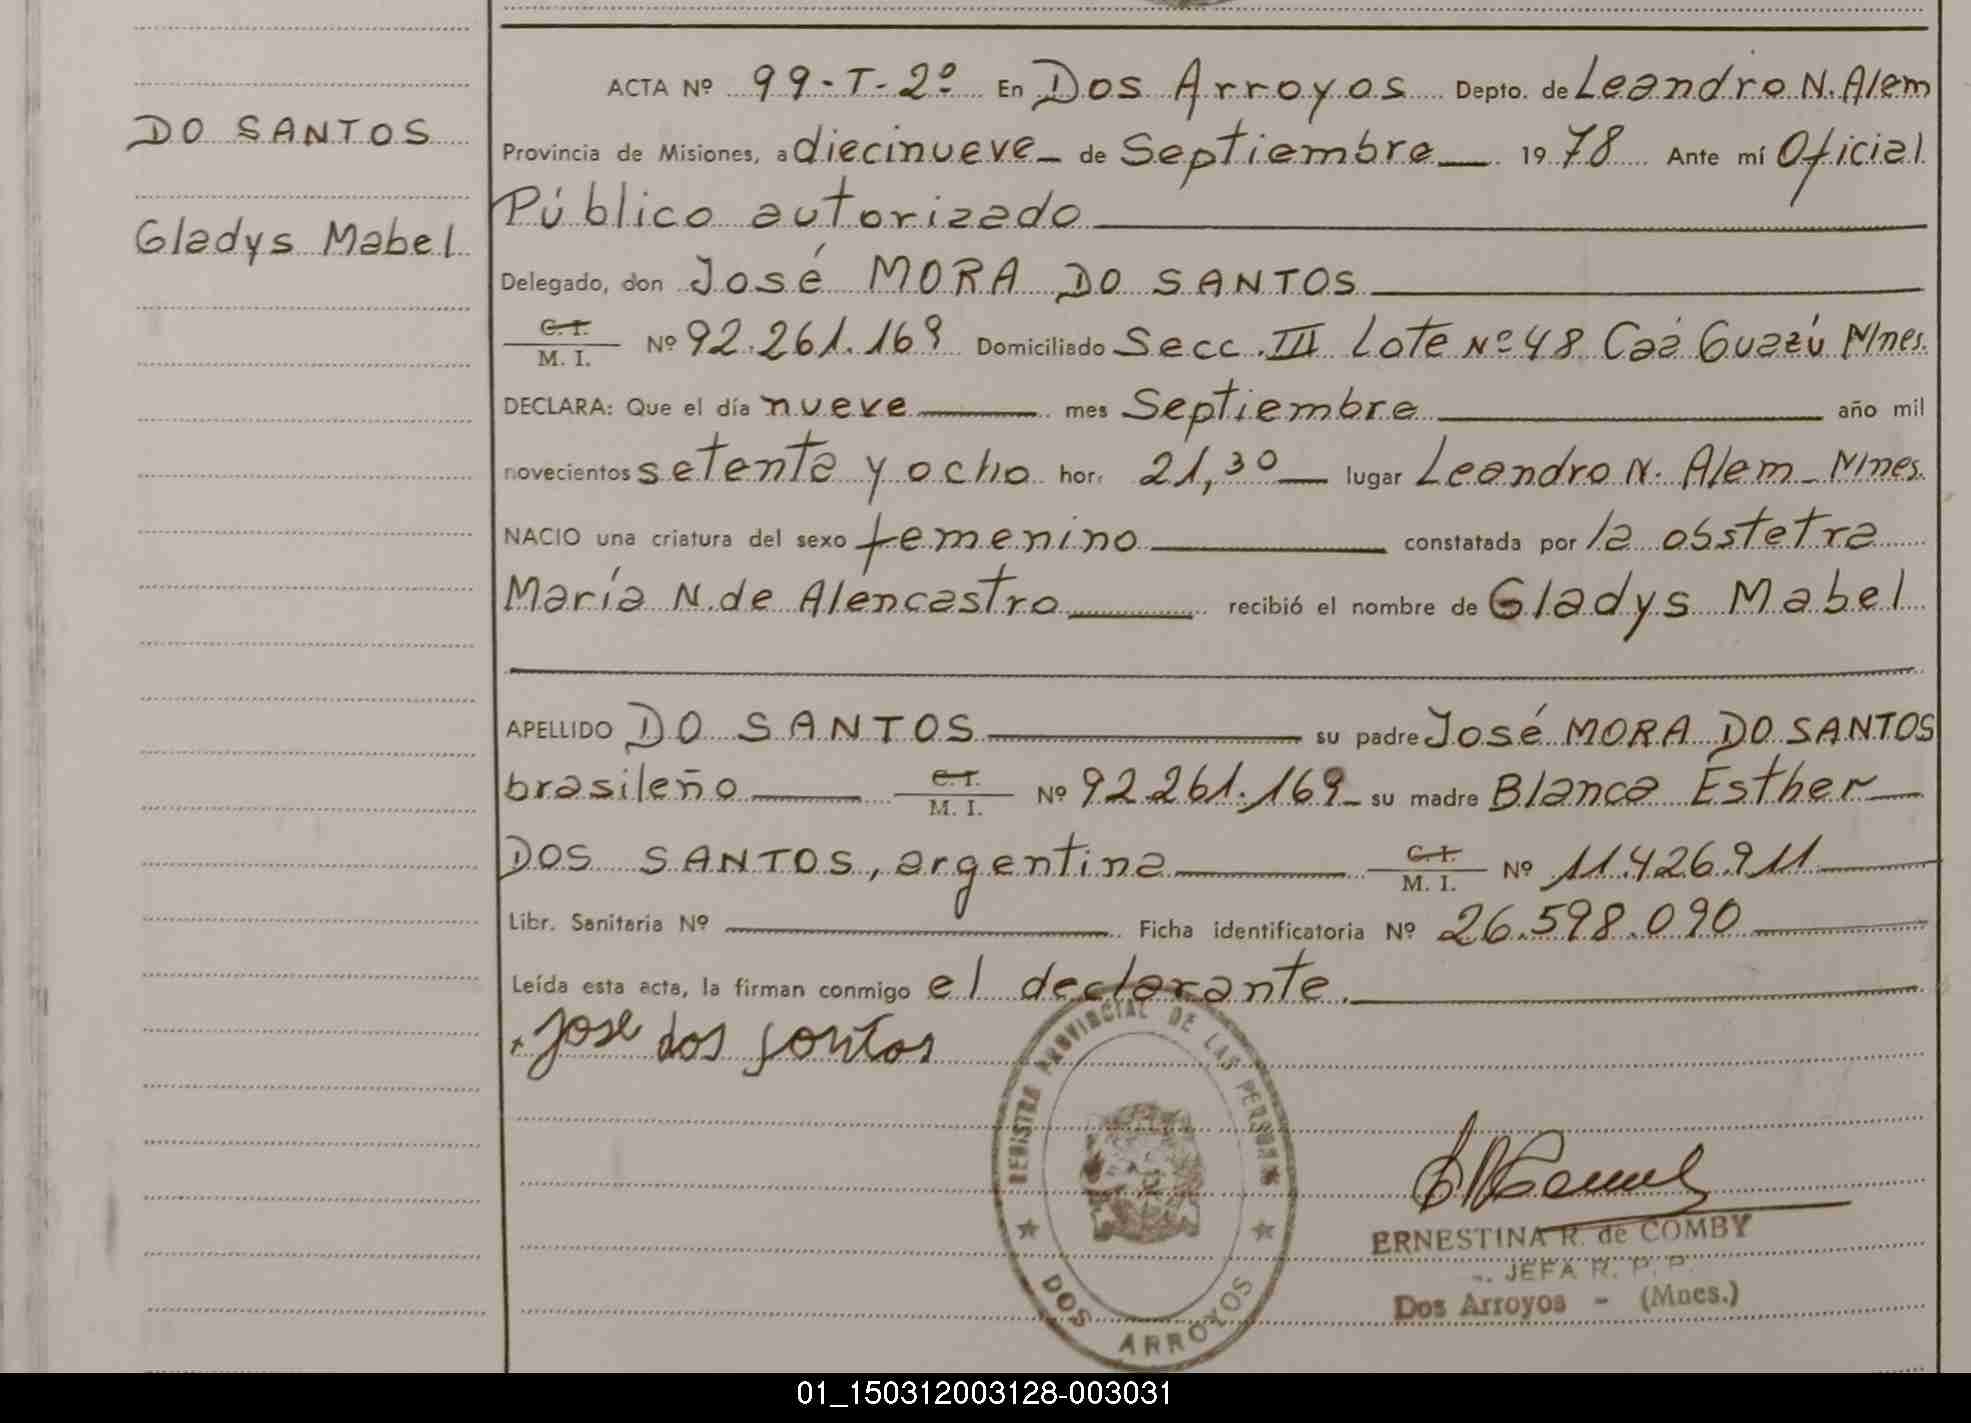 DO SANTOS
Gladys Mabel
ACTA Nº 99-T-2º En Dos Arroyos Depto. de Leandro N. Alem
Provincia de Misiones, a diecinueve de Septiembre 1978 Ante mí Oficial
Público autorizado
Delegado, don José MORA DO SANTOS
C. I.
M. I. Nº 92.261.169 Domiciliado Secc. III Lote Nº 48 Caá Guazú Mnes.
DECLARA: Que el día nueve mes Septiembre año mil
novecientos setenta y ocho hor. 21,30 lugar Leandro N. Alem - Mnes.
NACIO una criatura del sexo femenino constatada por la obstetra
María N. de Alencastro recibió el nombre de Gladys Mabel
APELLIDO DO SANTOS su padre José MORA DO SANTOS
brasileño C. I. M. I. Nº 92.261.169 su madre Blanca Esther
DOS SANTOS, argentina C. I. M. I. Nº 11.426.911
Libr. Sanitaria Nº Ficha identificatoria Nº 26.598.090
Leída esta acta, la firman conmigo el declarante.
Jose dos santos
REGISTRO PROVINCIAL DE LAS PERSONAS
DOS ARROYOS
ERNESTINA R. de COMBY
JEFA R. P. P.
Dos Arroyos - (Mnes.)
01_150312003128-003031